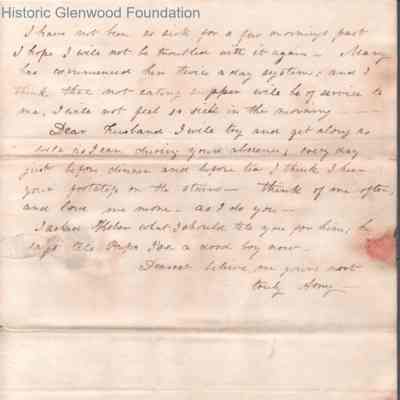 Historic Glenwood Foundation
I have not been so sick for a few mornings past
I hope I will not be troubled with it again — Mary
has commenced her twice a day system, and I
think the not eating supper will be of service to
me, I will not feel so sick in the morning —
Dear Husband I will try and get along as
well as I can during your absence, every day
just before dinner and before tea I think I hear
your footsteps on the stairs — think of me often,
and love me more as I do you —
I asked what I should tell you for him, he
says tell Papa I'se a dood boy now —
Dearest believe me yours most
truly